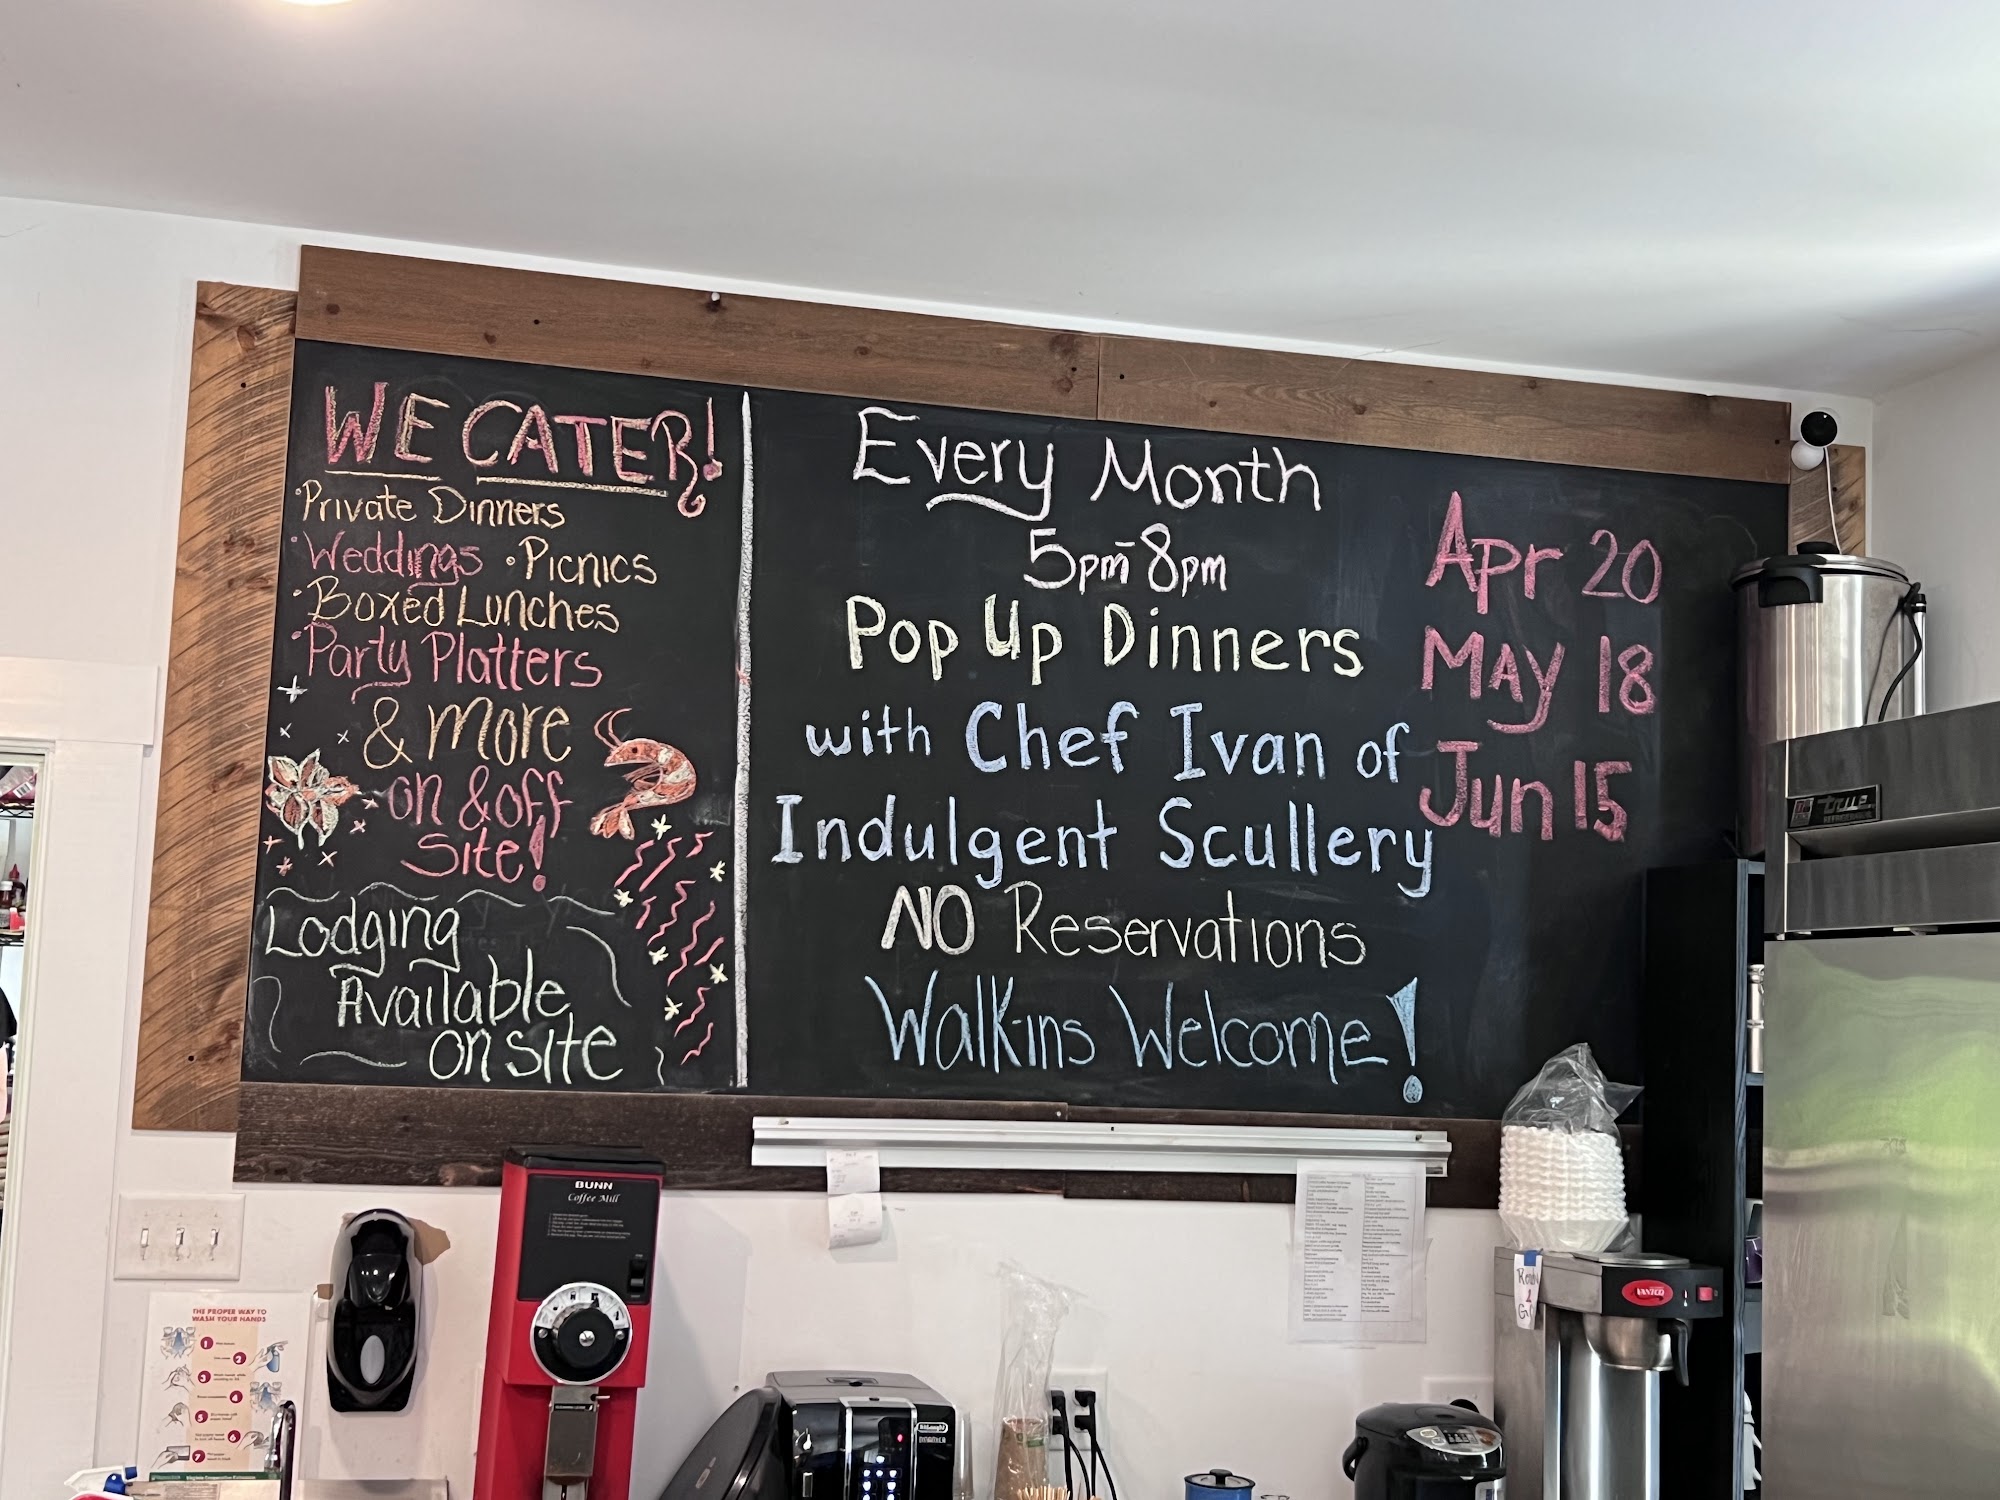 WE CATER!
• Private Dinners
• Weddings • Picnics
• Boxed Lunches
• Party Platters
& more
on & off
Site!
Lodging
Available
on site
Every Month
5pm-8pm
Pop Up Dinners
with Chef Ivan of
Indulgent Scullery
NO Reservations
Walk-ins Welcome!
Apr 20
May 18
Jun 15
true
BUNN
Coffee Mill
THE PROPER WAY TO
WASH YOUR HANDS
1
2
3
4
5
6
7
DeLonghi